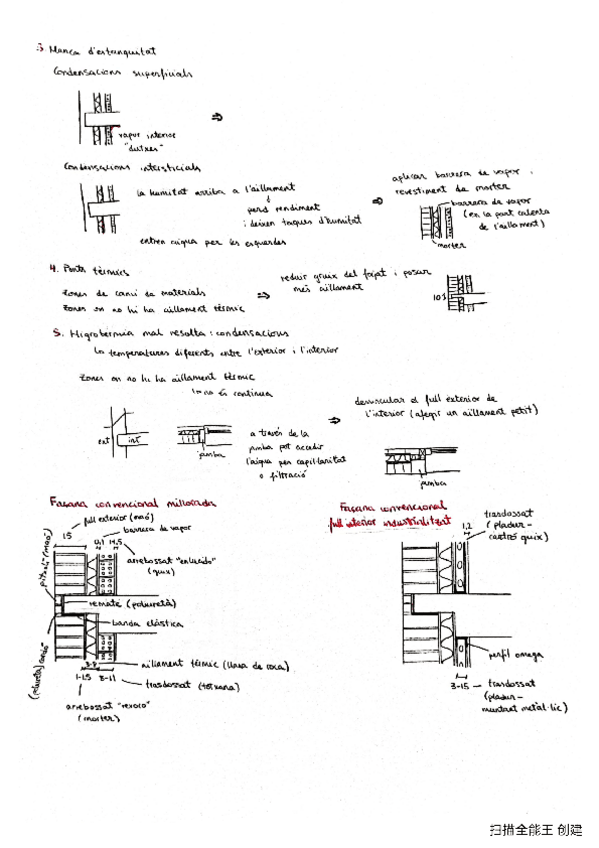 3. Manca d'estanquitat
Condensacions superficials
vapor interior
"dutxes"
⇒
Condensacions intersticials
la humitat arriba a l'aïllament
↓
perd rendiment
i deixen taques d'humitat
entren aigua per les esquerdes
⇒
aplicar barrera de vapor i
revestiment de morter
barrera de vapor
(en la part calenta
de l'aïllament)
morter
4. Ponts tèrmics
zones de canvi de materials
zones on no hi ha aïllament tèrmic
⇒
reduir gruix del forjat i posar
més aïllament
10
5. Higrotèrmia mal resolta: condensacions
temperatures diferents entre l'exterior i l'interior
zones on no hi ha aïllament tèrmic
no és continua
ext
int
jamba
a través de la
jamba pot accedir
l'aigua per capil·laritat
o filtració
⇒
desvincular el full exterior de
l'interior (afegir un aïllament petit)
jamba
Façana convencional millorada
full exterior (maó)
15
barrera de vapor
0,1
14,5
arrebossat "enlucido"
(guix)
(maó)
remate (poliuretà)
banda elàstica
3-8
aïllament tèrmic (llana de roca)
1-1,5
8-11
trasdossat (totxana)
arrebossat "revoco"
(morter)
Façana convencional
full interior industrialitzat
1,2
trasdossat
(pladur-
cartró guix)
perfil omega
3-15
trasdossat
(pladur-
muntant metàl·lic)
扫描全能王 创建